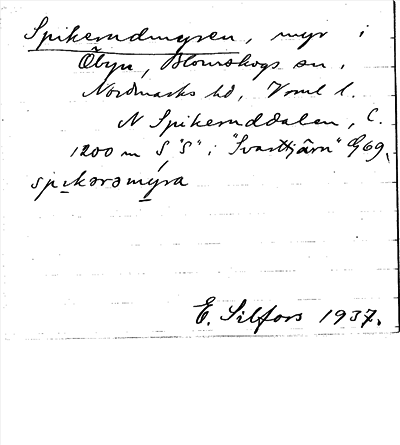 Spikerudmyren, myr i
Öbyn, Blomskogs sn.
Nordmarks hd, Vrml l.
N Spikeruddalen, C.
1200 m S "S" i "Svarttjärn" G 69.
spɩkərəmýra
E. Silfors 1937.